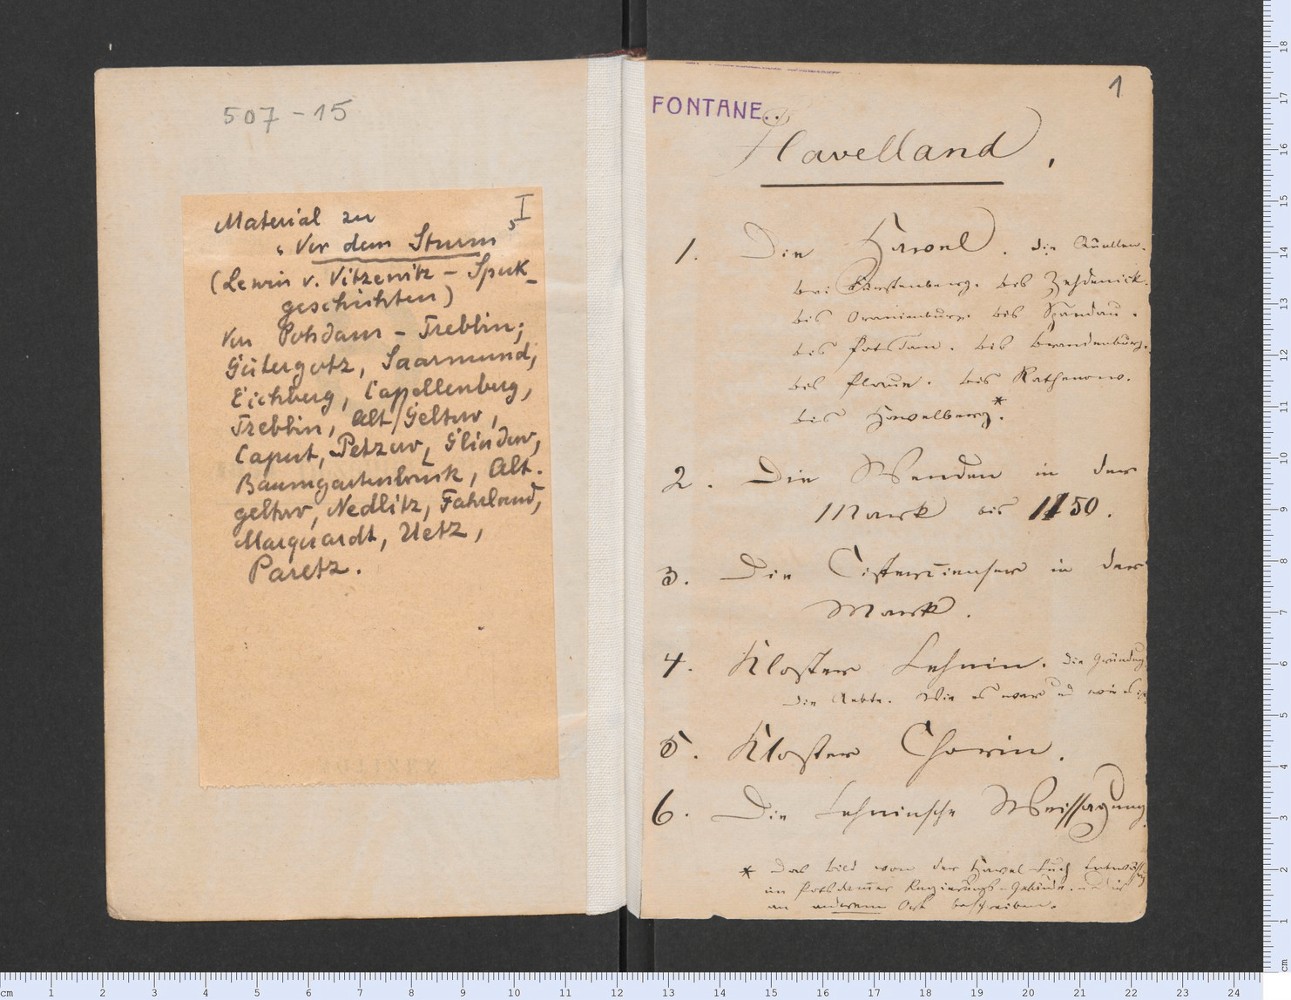 507 - 15
I
Material zu
„Vor dem Sturm“
(Lewin v. Vitzewitz - Spuk-
geschichten)
Von Potsdam - Trebbin;
Gütergotz, Saarmund,
Eichberg, Capellenberg,
Trebbin, Alt Geltow,
Caput, Petzow, Glindow,
Baumgartenbrück, Alt-
geltow, Nedlitz, Fahrland,
Marquardt, Uetz,
Paretz.
1
FONTANE..
Havelland.
1. Die Havel. Die Quellen.
bei Fürstenberg. bis Zehdenick.
bis Oranienburg. bis Spandau.
bis Potsdam. bis Brandenburg.
bis Plaue. bis Rathenow.
bis Havelberg.*
2. Die Wenden in der
Mark bis 1150.
3. Die Cistercienser in der
Mark.
4. Kloster Lehnin. Die Gründung
Die Aebte. Wie es war u wie es ist
5. Kloster Chorin.
6. Die Lehninsche Weissagung
* Das Bild von der Havel
im Potsdamer Regierungs-Gebäude.
an anderem Ort beschreiben.